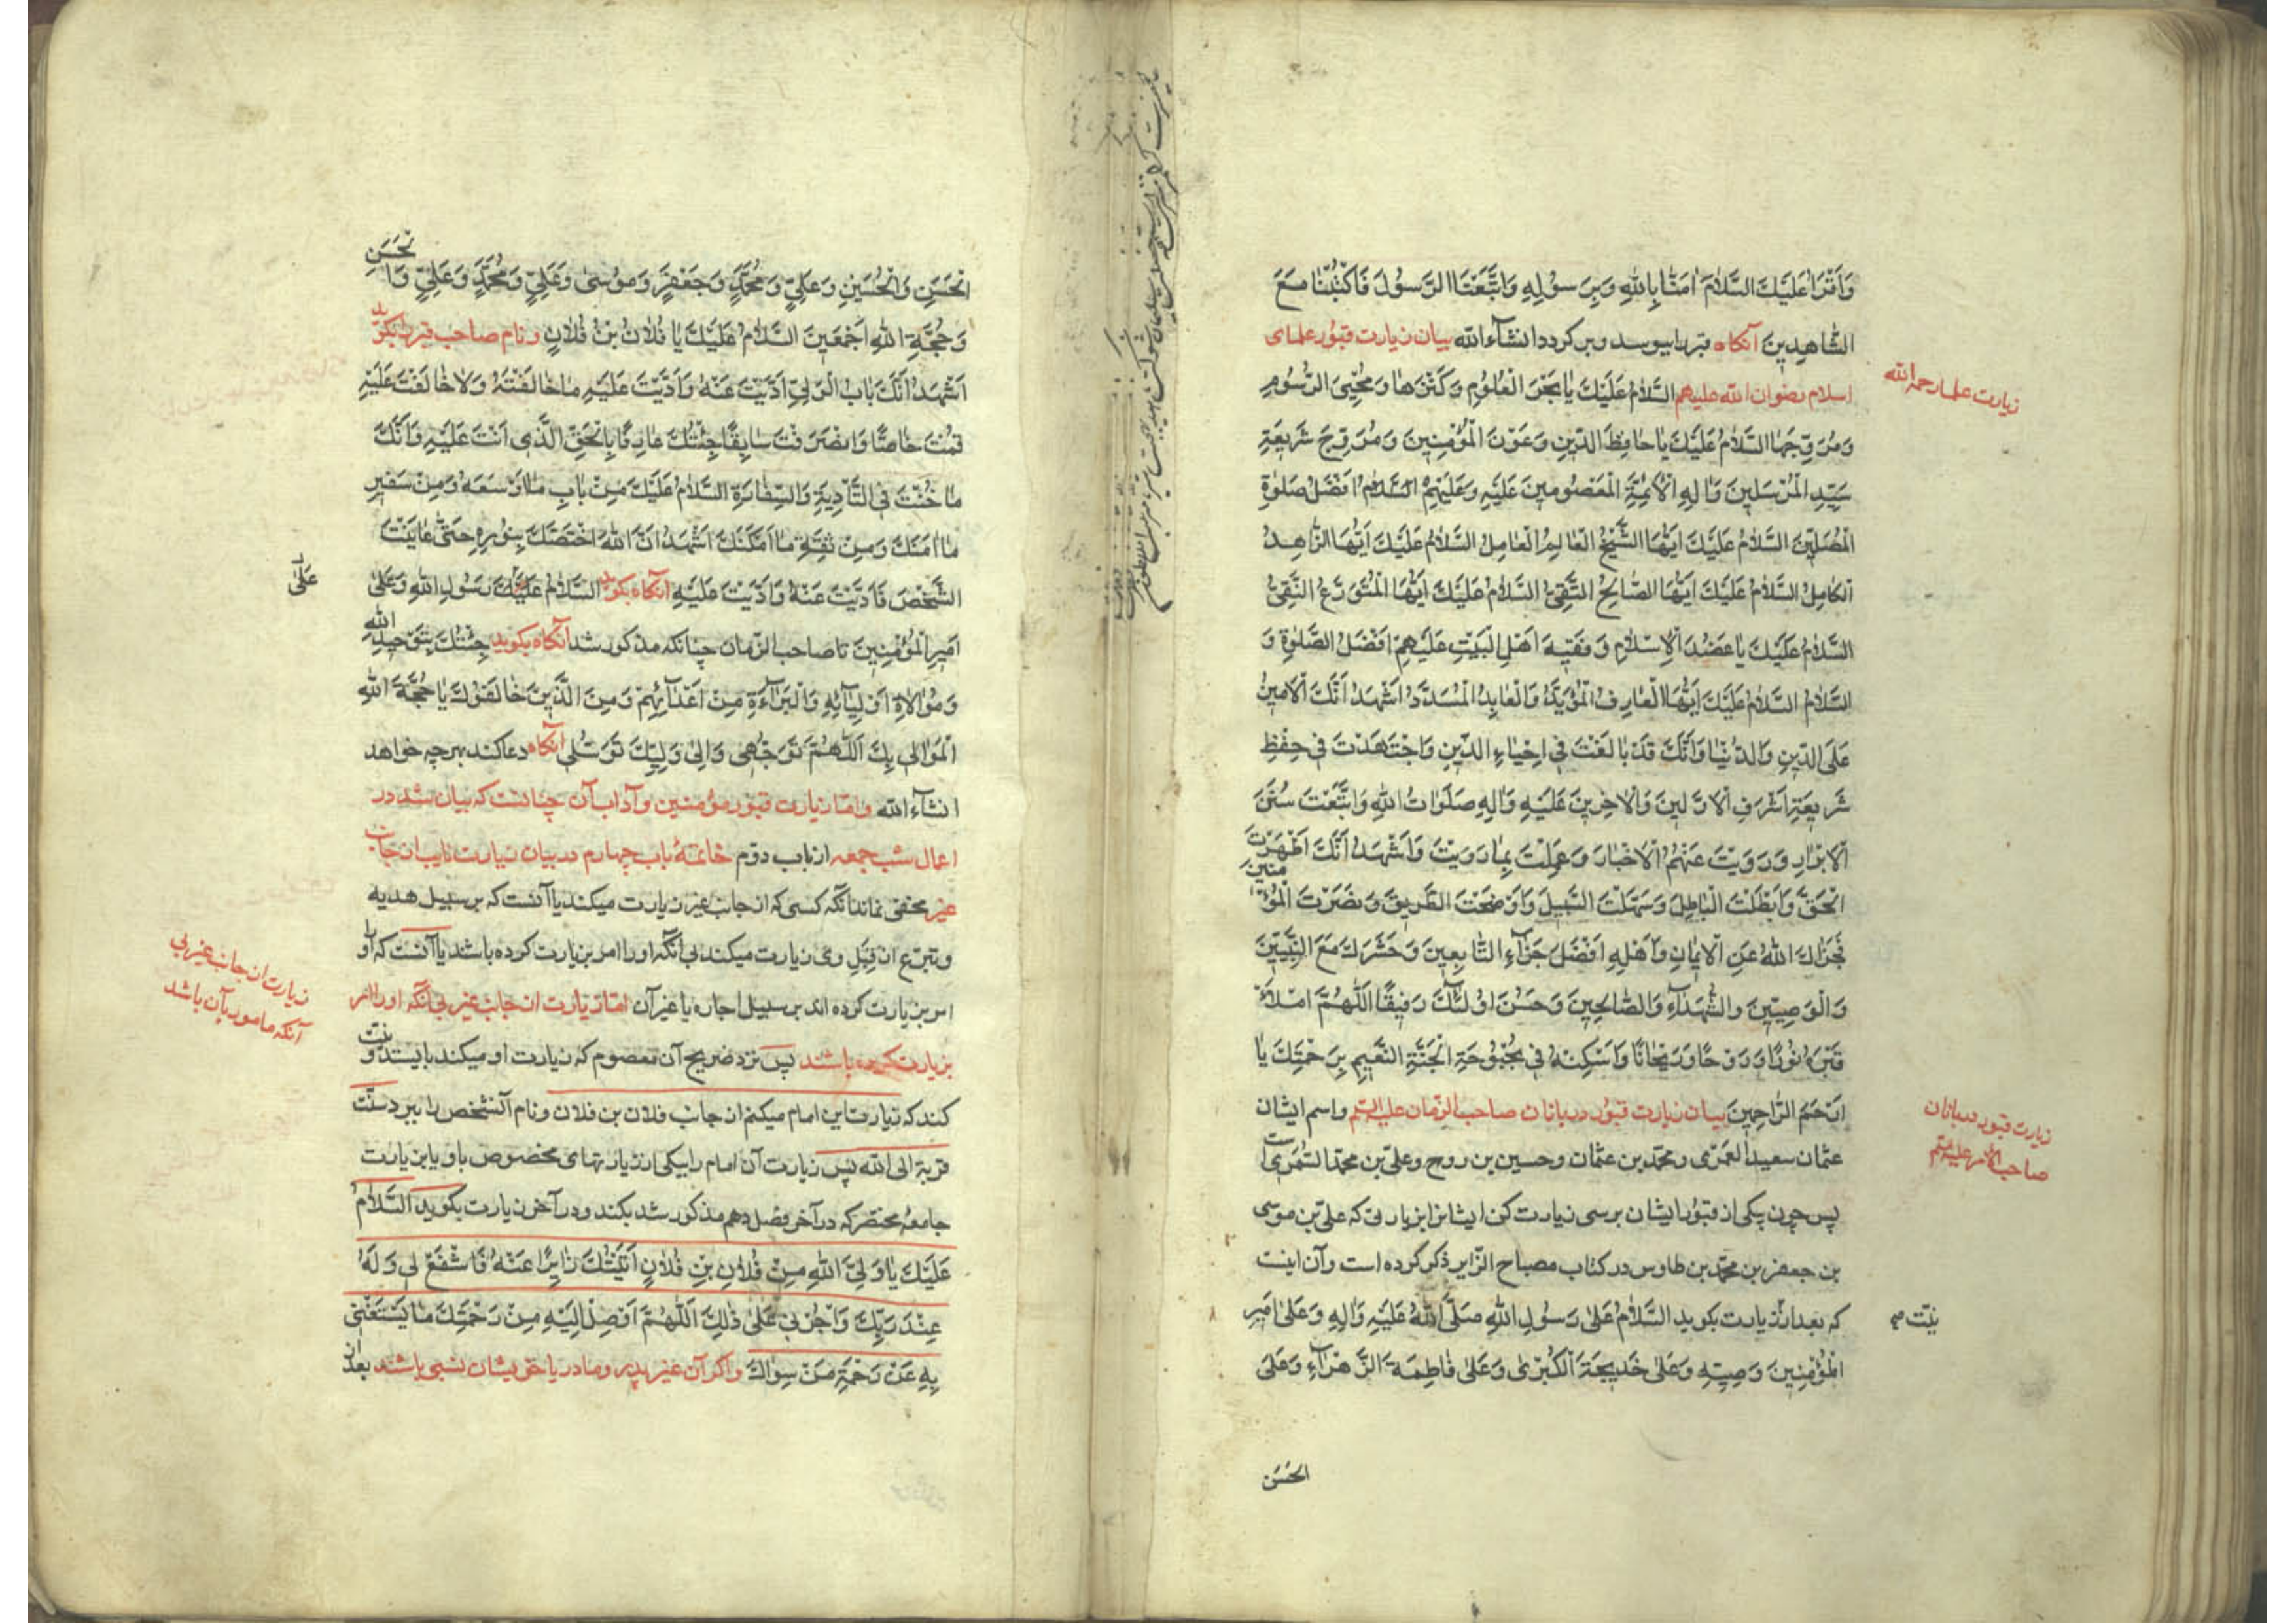 وَاَقْرَاُ عَلَيْكَ السَّلَامَ اٰمَنَّا بِاللّٰهِ وَبِرَسُوْلِهِ وَاتَّبَعْنَا الرَّسُوْلَ فَاكْتُبْنَا مَعَ
الشَّاهِدِيْنَ آنگاه قبر را ببوسد و برگردد انشآء الله بیان زیارت قبور علمای
اسلام رضوان الله علیهم السَّلَامُ عَلَيْكَ يَا بَحْرَ الْعُلُوْمِ وَكَنْزَهَا وَمُحْيِيَ الرُّسُوْمِ
وَمُرَوِّجَهَا السَّلَامُ عَلَيْكَ يَا حَافِظَ الدِّيْنِ وَعَوْنَ الْمُؤْمِنِيْنَ وَمُرَوِّجَ شَرِيْعَةِ
سَيِّدِ الْمُرْسَلِيْنَ وَاٰلِهِ الْاَئِمَّةِ الْمَعْصُوْمِيْنَ عَلَيْهِ وَعَلَيْهِمُ السَّلَامُ اَفْضَلُ صَلٰوةِ
الْمُصَلِّيْنَ السَّلَامُ عَلَيْكَ اَيُّهَا الشَّيْخُ الْعَالِمُ الْعَامِلُ السَّلَامُ عَلَيْكَ اَيُّهَا الزَّاهِدُ
الْكَامِلُ السَّلَامُ عَلَيْكَ اَيُّهَا الصَّالِحُ التَّقِيُّ السَّلَامُ عَلَيْكَ اَيُّهَا الْمُتَوَرِّعُ النَّقِيُّ
السَّلَامُ عَلَيْكَ يَا عَضُدَ الْاِسْلَامِ وَفَقِيْهَ اَهْلِ الْبَيْتِ عَلَيْهِمْ اَفْضَلُ الصَّلٰوةِ وَ
السَّلَامُ السَّلَامُ عَلَيْكَ اَيُّهَا الْعَارِفُ الْمُؤَيَّدُ وَالْعَابِدُ الْمُسَدَّدُ اَشْهَدُ اَنَّكَ الْاَمِيْنُ
عَلَى الدِّيْنِ وَالدُّنْيَا وَاَنَّكَ قَدْ بَالَغْتَ فِيْ اِحْيَاءِ الدِّيْنِ وَاجْتَهَدْتَ فِيْ حِفْظِ
شَرِيْعَةِ اَشْرَفِ الْاَوَّلِيْنَ وَالْاٰخِرِيْنَ عَلَيْهِ وَاٰلِهِ صَلَوَاتُ اللّٰهِ وَاتَّبَعْتَ سُنَنَ
الْاَبْرَارِ وَرَوَيْتَ عَنْهُمُ الْاَخْبَارَ وَعَمِلْتَ بِمَا رَوَيْتَ وَاَشْهَدُ اَنَّكَ اَظْهَرْتَ
الْحَقَّ وَاَبْطَلْتَ الْبَاطِلَ وَسَهَّلْتَ السَّبِيْلَ وَاَوْضَحْتَ الطَّرِيْقَ وَنَصَرْتَ الْمُؤْمِنِيْنَ
فَجَزَاكَ اللّٰهُ عَنِ الْاِيْمَانِ وَاَهْلِهِ اَفْضَلَ جَزَآءِ التَّابِعِيْنَ وَحَشَرَكَ مَعَ النَّبِيِّيْنَ
وَالْوَصِيِّيْنَ وَالشُّهَدَآءِ وَالصَّالِحِيْنَ وَحَسُنَ اُولٰئِكَ رَفِيْقًا اَللّٰهُمَّ امْلَأْ
قَبْرَهُ نُوْرًا وَرَوْحًا وَرَيْحَانًا وَاَسْكِنْهُ فِيْ بُحْبُوْحَةِ الْجَنَّةِ النَّعِيْمِ بِرَحْمَتِكَ يَا
اَرْحَمَ الرَّاحِمِيْنَ بیان زیارت قبور دربانان صاحب الزمان علیه السلم واسم ایشان
عثمان سعید العمری ومحمد بن عثمان وحسین بن روح وعلی بن محمد السمری است
پس چون یکی از قبور ایشان برسی زیارت کن ایشانرا بزیارتی که علی بن موسی
بن جعفر بن محمد بن طاوس در کتاب مصباح الزایر ذکر کرده است وآن اینست
که بعد از زیارت بگوید السَّلَامُ عَلٰى رَسُوْلِ اللّٰهِ صَلَّى اللّٰهُ عَلَيْهِ وَاٰلِهِ وَعَلٰى اَمِيْرِ
الْمُؤْمِنِيْنَ وَصِيِّهِ وَعَلٰى خَدِيْجَةَ الْكُبْرٰى وَعَلٰى فَاطِمَةَ الزَّهْرَآءِ وَعَلَى
الحَسَنِ
زیارت علما رحمه الله
زیارت قبور دربانان
صاحب الامر علیه السلم
نیّت صح
الْحَسَنِ وَالْحُسَيْنِ وَعَلِيٍّ وَمُحَمَّدٍ وَجَعْفَرٍ وَمُوْسٰى وَعَلِيٍّ وَمُحَمَّدٍ وَعَلِيٍّ وَالْحَسَنِ
وَحُجَّةِ اللّٰهِ اَجْمَعِيْنَ السَّلَامُ عَلَيْكَ يَا فُلَانُ بْنُ فُلَانٍ ونام صاحب قبر را بگوید
اَشْهَدُ اَنَّكَ بَابُ الْوَلِيِّ اَدَّيْتَ عَنْهُ وَاَدَّيْتَ عَلَيْهِ مَا خَالَفْتَهُ وَلَا خَالَفْتَ عَلَيْهِ
قُمْتَ خَاصًّا وَانْصَرَفْتَ سَابِقًا جِئْتُكَ عَارِفًا بِالْحَقِّ الَّذِيْ اَنْتَ عَلَيْهِ وَاَنَّكَ
مَا خُنْتَ فِي التَّأْدِيَةِ وَالسِّفَارَةِ السَّلَامُ عَلَيْكَ مِنْ بَابِ مَا اَوْسَعَهُ وَمِنْ سَفِيْرٍ
مَا اٰمَنَكَ وَمِنْ ثِقَةٍ مَا اَمْكَنَكَ اَشْهَدُ اَنَّ اللّٰهَ اخْتَصَّكَ بِنُوْرِهِ حَتّٰى عَايَنْتَ
الشَّخْصَ فَاَدَّيْتَ عَنْهُ وَاَدَّيْتَ عَلَيْهِ آنگاه بگوید السَّلَامُ عَلَيْكَ رَسُوْلِ اللّٰهِ وَعَلٰى
اَمِيْرِ الْمُؤْمِنِيْنَ تا صاحب الزمان چنانکه مذکور شد آنگاه بگوید جِئْتُكَ بِتَوْحِيْدِ اللّٰهِ
وَمُوَالَاةِ اَوْلِيَآئِهِ وَالْبَرَآءَةِ مِنْ اَعْدَآئِهِمْ وَمِنَ الَّذِيْنَ خَالَفُوْكَ يَا حُجَّةَ اللّٰهِ
الْمَوَالِيْ بِكَ اَللّٰهُمَّ تَوَجُّهِيْ وَاِلٰى وَلِيِّكَ تَوَسُّلِيْ آنگاه دعا کند بهرچه خواهد
انشآء الله واما زیارت قبور مؤمنین وآداب آن چنانست که بیان شد در
اعمال شب جمعه از باب دوم خاتمهٔ باب چهارم در بیان زیارت نایب از جانب
غیر مخفی نماند آنکه کسی که از جانب غیر زیارت میکند یا آنست که بر سبیل هدیه
وتبرع از قبل وی زیارت میکند بی آنکه او را امر بزیارت کرده باشد یا آنست که او را
امر بزیارت کرده اند بر سبیل اجاره یا غیر آن اما زیارت از جانب غیر بی آنکه او را امر
بزیارت کرده باشند پس نزد ضریح آن معصوم که زیارت او میکند بایستد ونیت
کند که زیارت این امام میکنم از جانب فلان بن فلان ونام آنشخص را ببرد سنّت
قربة الی الله پس زیارت آن امام را بیکی از زیارتهای مخصوص باو یا بزیارت
جامعهٔ مختصر که در آخر فصل دهم مذکور شد بکند ودر آخر زیارت بگوید السَّلَامُ
عَلَيْكَ يَا وَلِيَّ اللّٰهِ مِنْ فُلَانِ بْنِ فُلَانٍ اَتَيْتُكَ زَائِرًا عَنْهُ فَاشْفَعْ لِيْ وَلَهُ
عِنْدَ رَبِّكَ وَاْجُرْنِيْ عَلٰى ذٰلِكَ اَللّٰهُمَّ اَوْصِلْ اِلَيْهِ مِنْ رَحْمَتِكَ مَا يَسْتَغْنِيْ
بِهِ عَنْ رَحْمَةِ مَنْ سِوَاكَ واگر آن غیر پدر ومادر یا خویشان نسبی باشند بعد از
عَلٰى
زیارت از جانب غیر بی
آنکه مامور بآن باشد